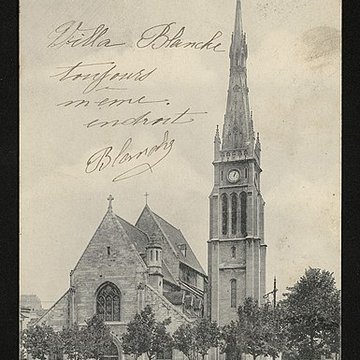 Villa Blanche
toujours
même
endroit
Blanche